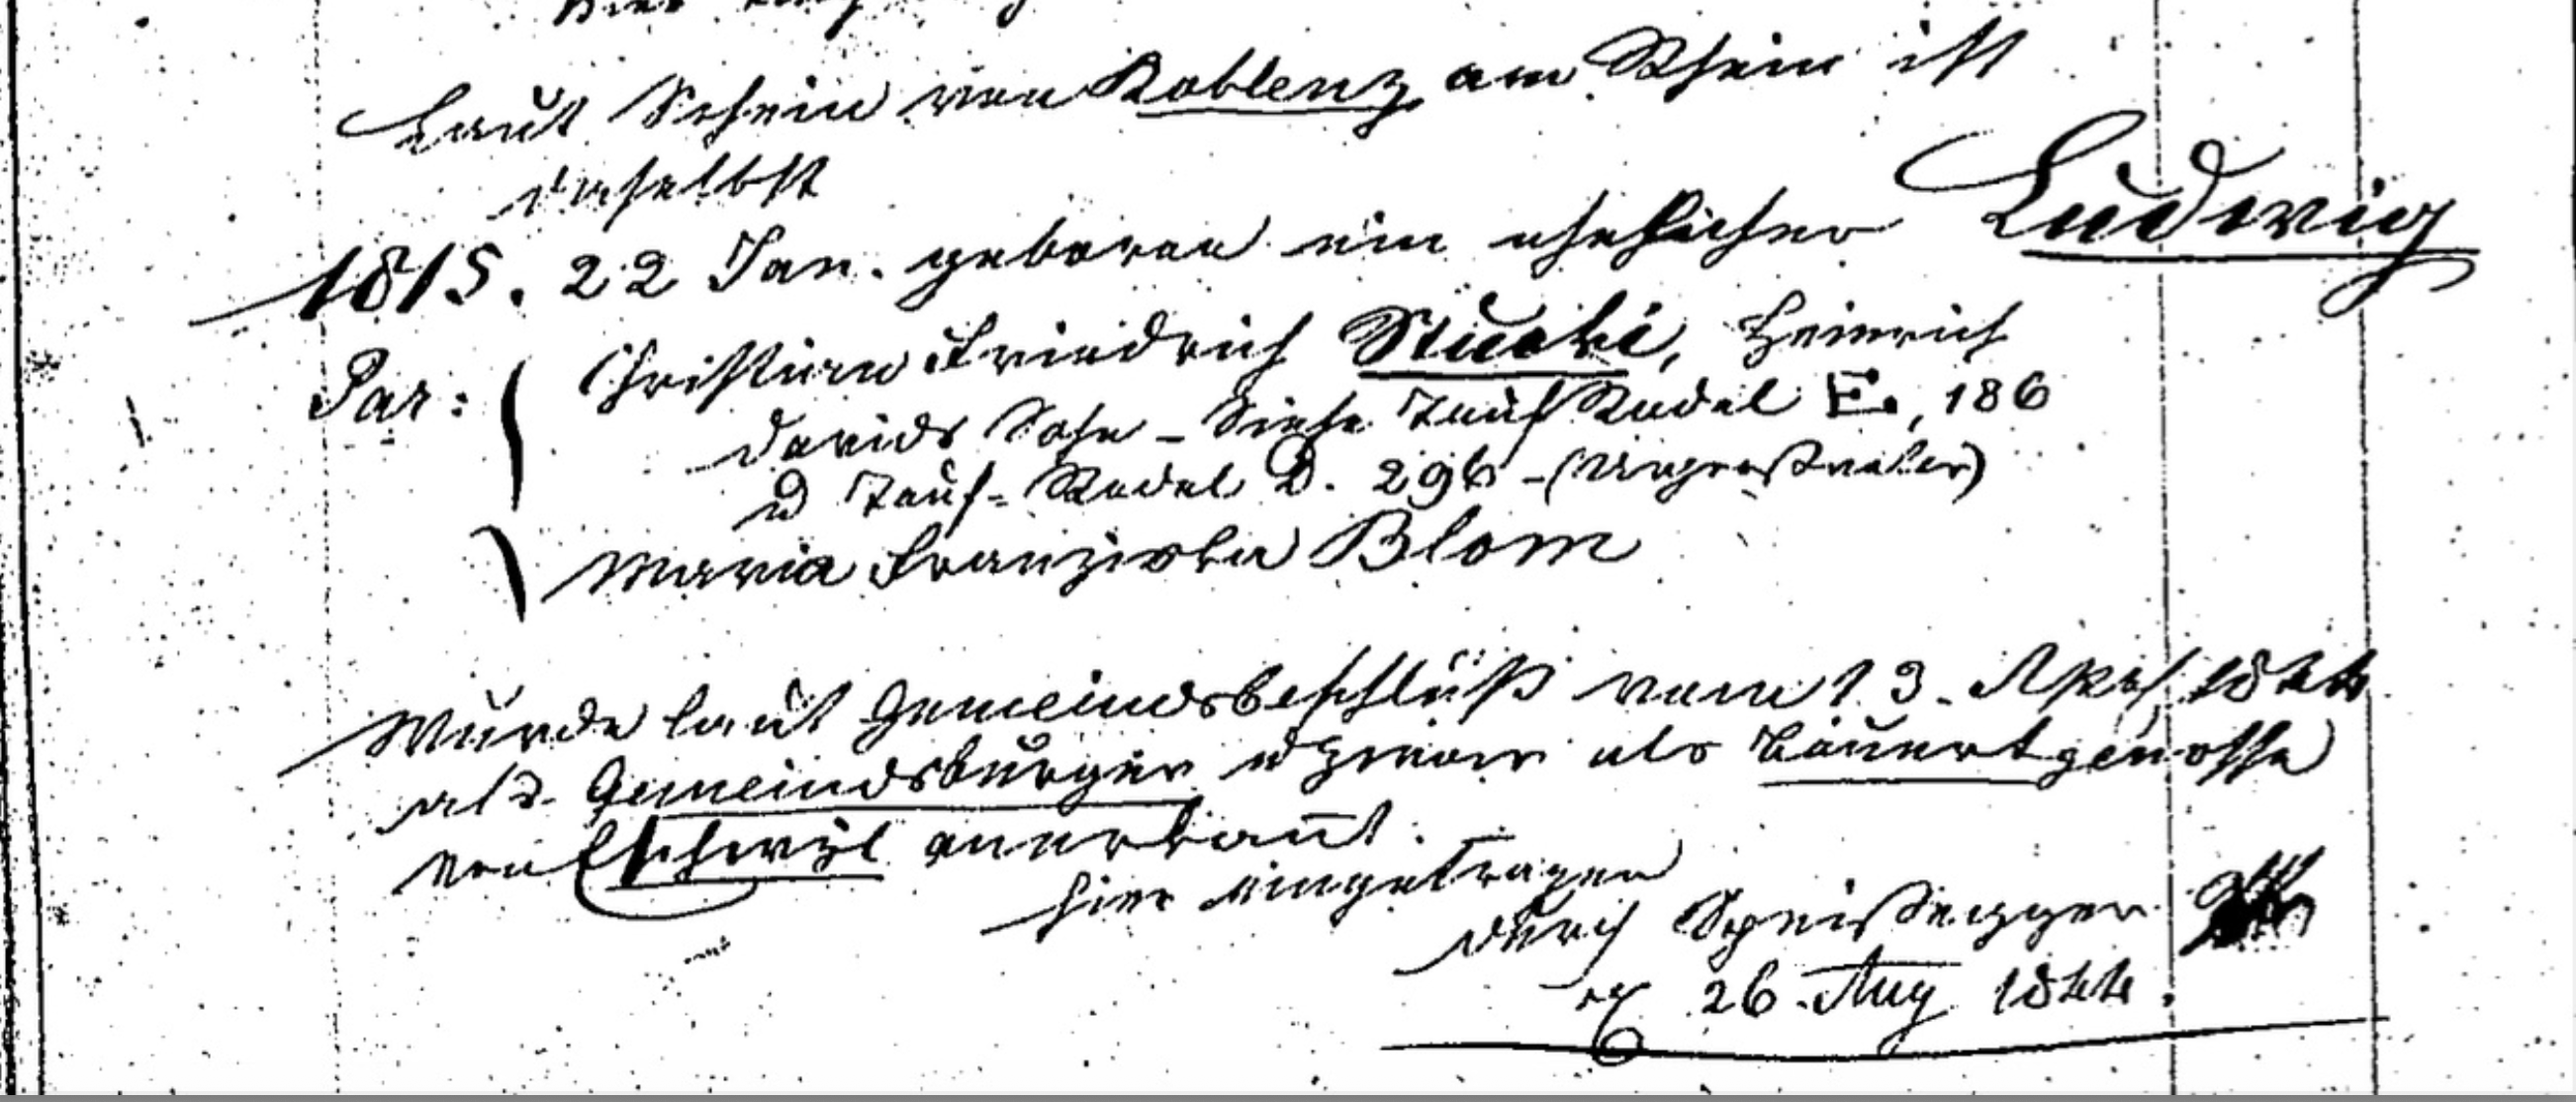 Laut Schein von Koblenz am Rhein ist
daselbst
1815. 22 Jan. geboren ein ehelicher Ludwig
Par: Christian Friedrich Stucki, Heinrich
Davids Sohn - Siehe Tauf Rodel E., 186
u Tauf-Rodel D. 296 - (Urgroßvater)
Maria Franziska Blom
Wurde laut Gemeindsbeschluß vom 13. 1844
als Gemeindsburger u zwar als Bäuertgenosse
von anerkannt.
hier eingetragen
durch Speißegger
26 Aug 1844.